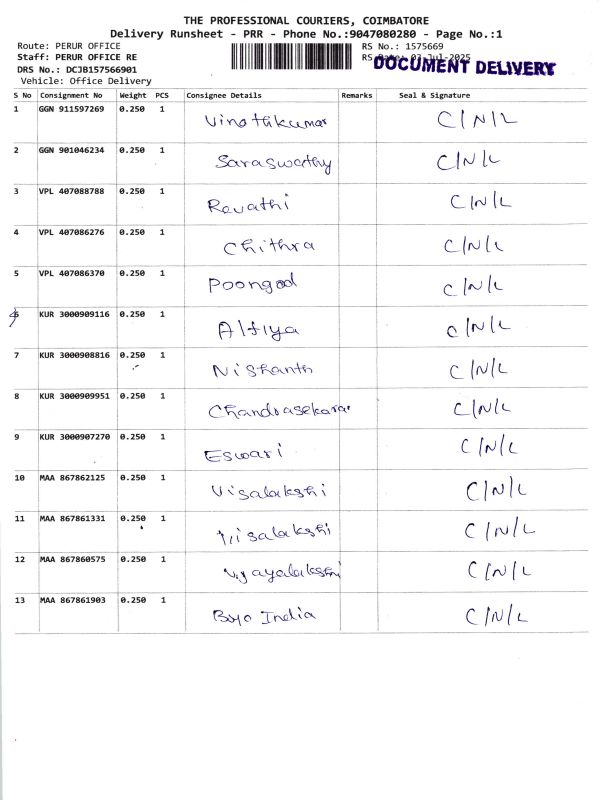 THE PROFESSIONAL COURIERS, COIMBATORE
Delivery Runsheet - PRR - Phone No.:9047080280 - Page No.:1
Route: PERUR OFFICE RS No.: 1575669
Staff: PERUR OFFICE RE RS Date: 03-Jul-2025
DOCUMENT DELIVERY
DRS No.: DCJB157566901
Vehicle: Office Delivery
S No Consignment No Weight PCS Consignee Details Remarks Seal & Signature
1 GGN 911597269 0.250 1 Vinothkumar C/N/L
2 GGN 901046234 0.250 1 Saraswathy C/N/L
3 VPL 407088788 0.250 1 Revathi C/N/L
4 VPL 407086276 0.250 1 Chithra C/N/L
5 VPL 407086370 0.250 1 Poongod C/N/L
6 KUR 3000909116 0.250 1 Alfiya C/N/L
7 KUR 3000908816 0.250 1 Nishanth C/N/L
8 KUR 3000909951 0.250 1 Chandrasekarar C/N/L
9 KUR 3000907270 0.250 1 Eswari C/N/L
10 MAA 867862125 0.250 1 Visalakshi C/N/L
11 MAA 867861331 0.250 1 Visalakshi C/N/L
12 MAA 867860575 0.250 1 Vijayalakshmi C/N/L
13 MAA 867861903 0.250 1 India C/N/L